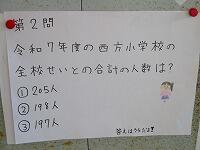 第2問
令和7年度の西方小学校の
全校せいとの合計の人数は?
① 205人
② 198人
③ 197人
答えはうらだよ!!